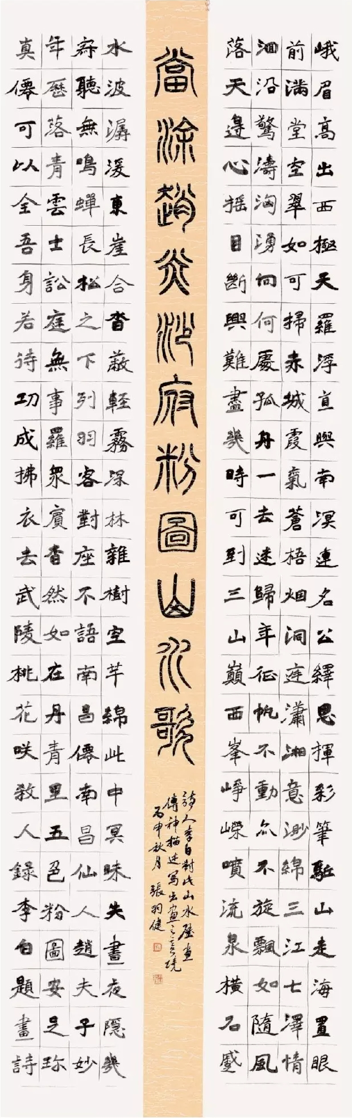 峨眉高出西極天羅浮直與南溟連名公繹思揮彩筆驅山走海置眼
前滿堂空翠如可掃赤城霞氣蒼梧烟洞庭瀟湘意渺綿三江七澤情
洄沿驚濤洶湧向何處孤舟一去迷歸年征帆不動亦不旋飄如隨風
落天邊心搖目斷興難盡幾時可到三山巔西峯崢嶸噴流泉橫石蹙
當涂趙炎沙府粉圖山水歌
詩人李白對此山水壁畫
傳神描述寫出畫之意境
丙申秋月 張羽健
水波潺湲東崖合沓蔽輕霧深林雜樹空芊綿此中冥昧失晝夜隱幾
寂聽無鳴蟬長松之下列羽客對座不語南昌僊南昌仙人趙夫子妙
年歷落青雲士訟庭無事羅眾賓杳然如在丹青里五色粉圖安足珍
真僊可以全吾身若待功成拂衣去武陵桃花咲殺人錄李白題畫詩